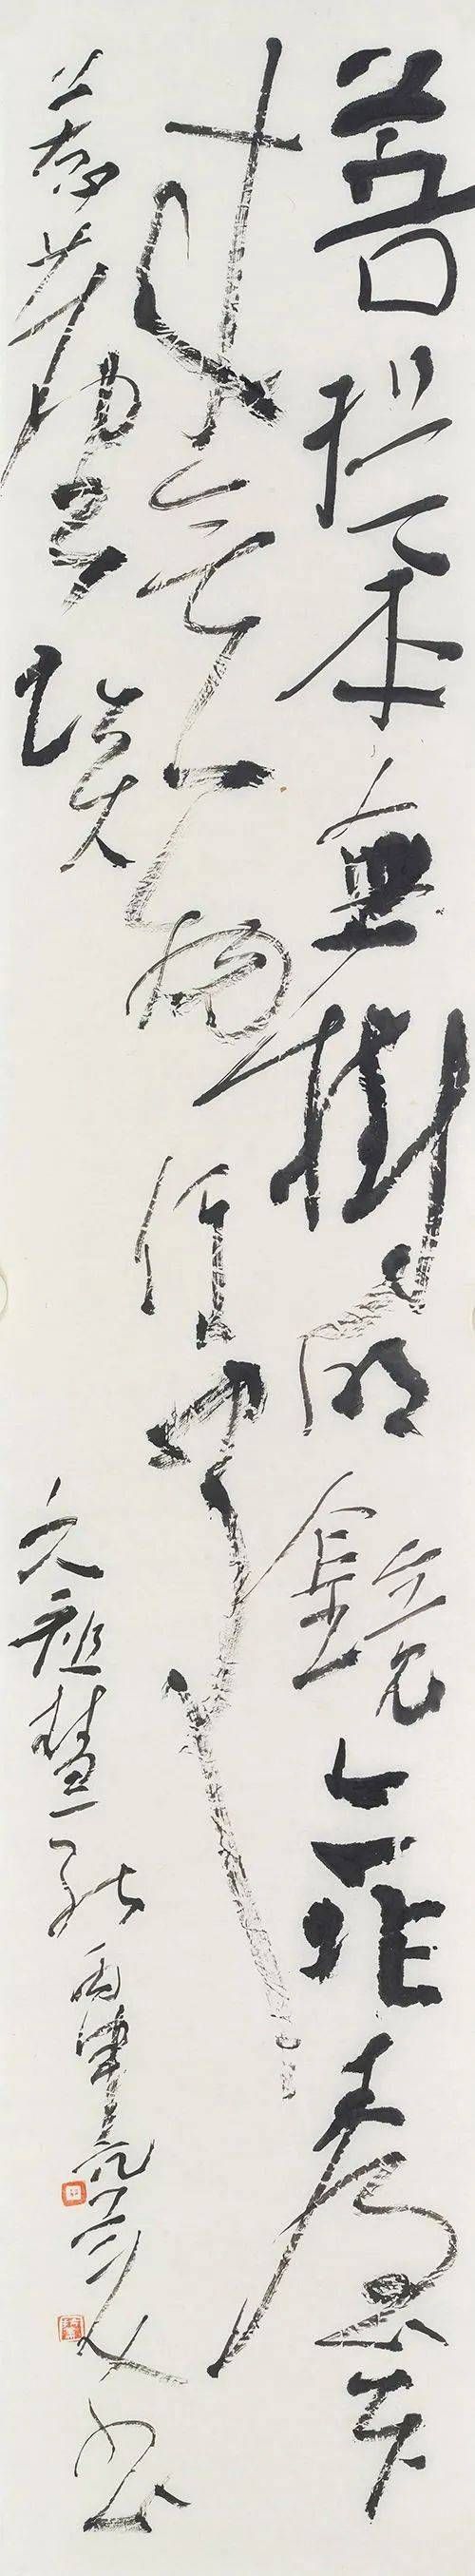 菩提本無樹明鏡亦非臺本
来無一物何處
惹塵埃
六祖慧能 丙申 書